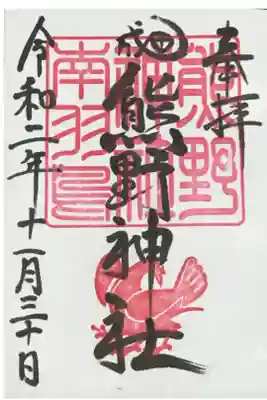 奉拝
成田
熊野神社
令和二年十一月三十日
熊野
南羽鳥